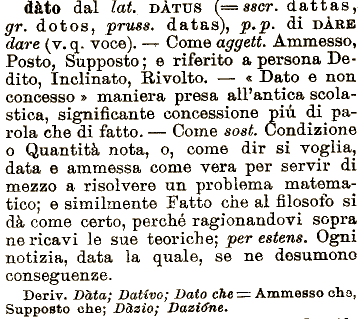 dàto dal lat. DÀTUS (= sscr. dattas,
gr. dotos, pruss. datas), p. p. di DÀRE
dare (v. q. voce). — Come aggett. Ammesso,
Posto, Supposto; e riferito a persona De-
dito, Inclinato, Rivolto. — « Dato e non
concesso » maniera presa all'antica scola-
stica, significante concessione piú di pa-
rola che di fatto. — Come sost. Condizione
o Quantità nota, o, come dir si voglia,
data e ammessa come vera per servir di
mezzo a risolvere un problema matema-
tico; e similmente Fatto che al filosofo si
dà come certo, perché ragionandovi sopra
ne ricavi le sue teoriche; per estens. Ogni
notizia, data la quale, se ne desumono
conseguenze.
Deriv. Dàta; Datívo; Dato che = Ammesso che,
Supposto che; Dàzio; Dazióne.